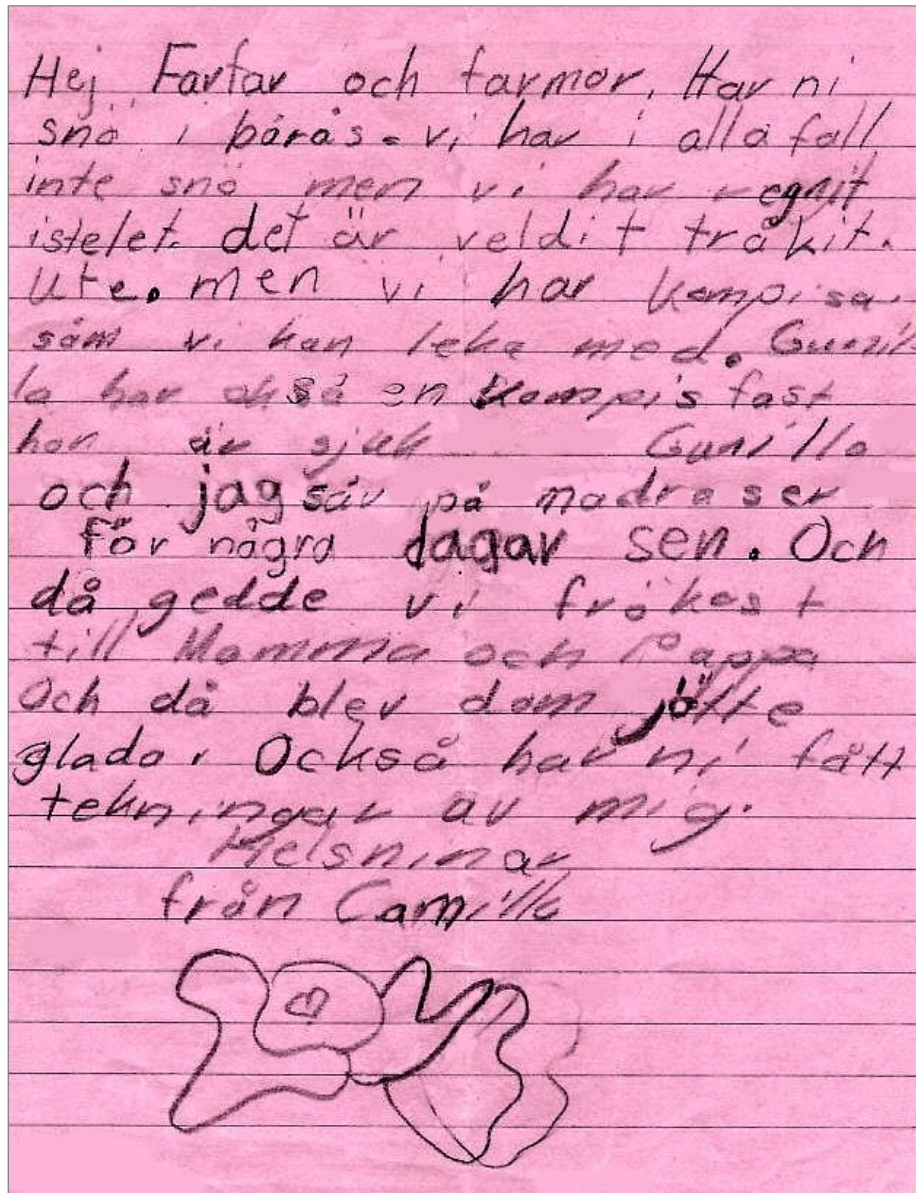 Hej Farfar och farmor. Har ni
snö i bårås. vi har i alla fall
inte snö men vi har regnit
istelet. det är veldit tråkit.
Ute. men vi har kompisar
såm vi kan leka med. Gunil-
la har okså en kompis fast
hon är sjuk Gunilla
och jag såv på madraser
för några dagar sen. Och
då gedde vi frökost
till Mamma och Pappa
Och då blev dom jätte
glada. Också har ni fått
tekningar av mig.
Helsninar
från Camilla